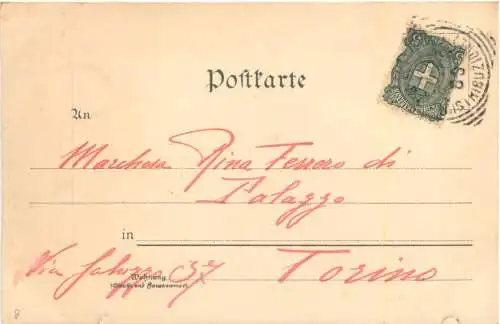 Postkarte
An
Marchesa Rina Ferrero di
Palazzo
in
Wohnung
Via Saluzzo 37 Torino
8